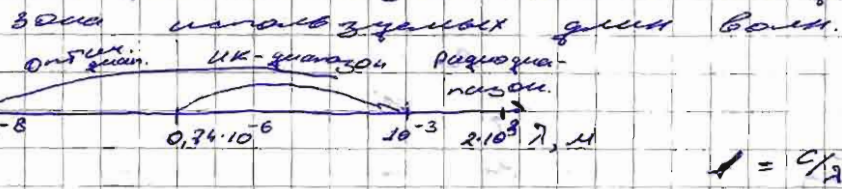 зона используемых длин волн.
Оптич. ИК-диапазон Радиодиа-
диап. пазон.
-8 0,74·10⁻⁶ 10⁻³ 2·10³ λ, м
= c/λ